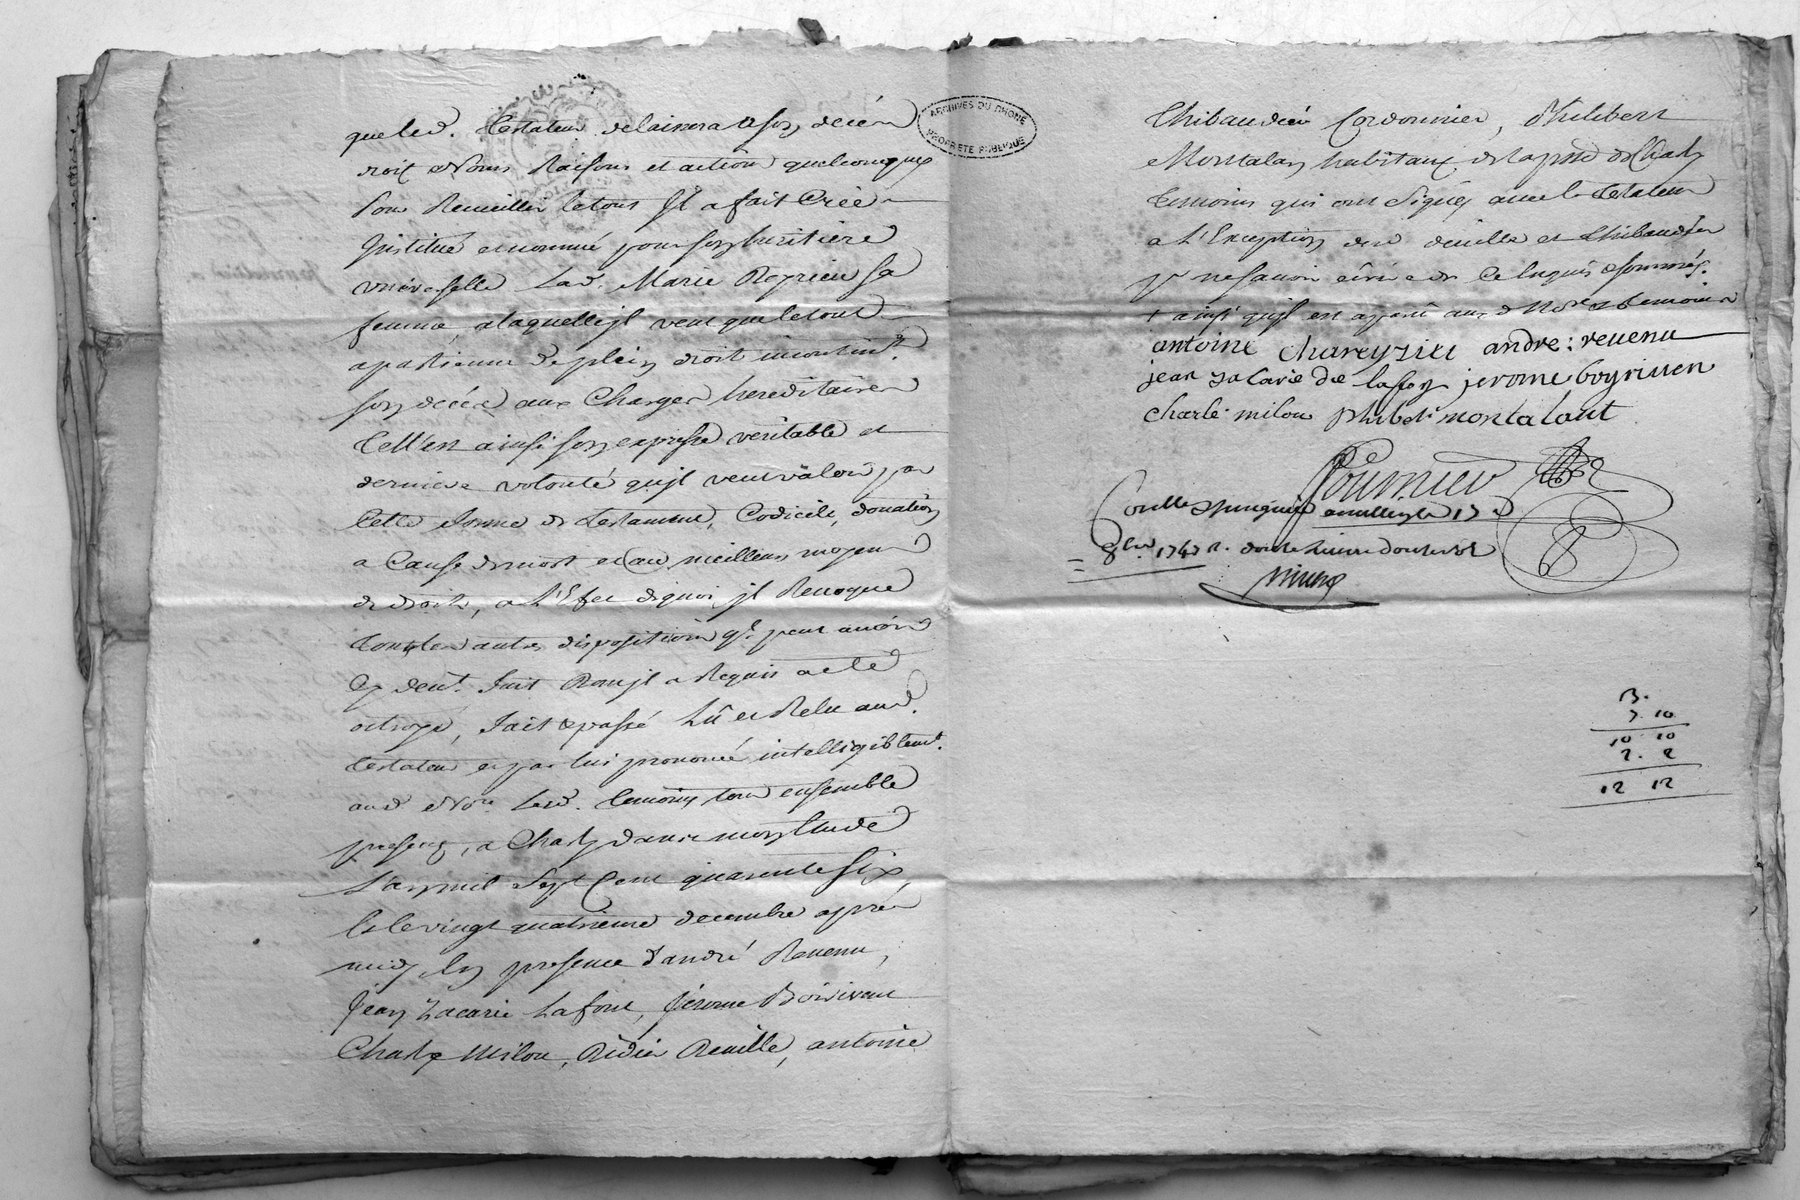 que led. Testateur delaissera a son decés
droit Noms Raisons et action quelconques
pour Recueillir le tout Jl a fait Créé
Jnstitué et nommé pour son heritiere
universelle lad. Marie Reyrieu sa
femme a laquelle jl veut que le tout
apartienne de plein droit incontint.
son decés aux Charges hereditaires
Cell'est ainsi son expresse veritable et
derniere volonté qu'jl veut valoir par
cette forme de testament, Codicile, donation
a Cause de mort et au meilleur moyen
de droit, a L'Efet de quoi jl Revoque
touttes autres dispositions ql. peut avoir
cy devt. fait Dont jl a Requis acte
octroyé, fait & passé Lû et Relu aud.
testateur et par lui prononcé intelligiblemt.
aud. Nore. Lesd. temoins tous ensemble
presens, a Charly dans mon Etude
L'an mil sept Cent quarente six,
& le vingt quatrieme decembre aprés
midy, En presence d'andré Revenu,
Jean Zacarie Lafont, Jérome Boirivent
Charle Milou, Didier Deville, antoine
ARCHIVES DU RHONE
PROPRIETE PUBLIQUE
Thibaudier Cordonnier, Philibert
Montalan habitans de la psse de Charly
temoins qui ont signés avec le testateur
a L'Exception desd deville et thibaudier
pr ne savoir écrire de ce Enquis & sommés.
antoine chareyzieu andre: revenu
jean zacarie de lafon jerome boyriven
charle milou philbt. montalant
Fournier
Controllé
8bre 1747 R. douze livres douze sols
3.
7. 10
10 10
2. 2
12 12